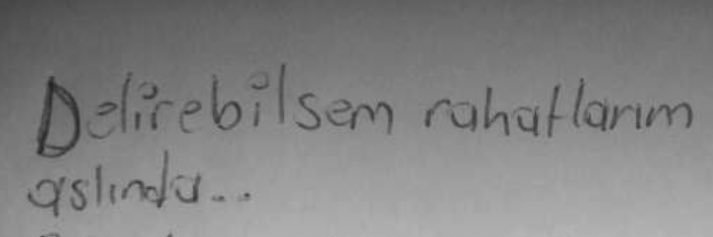 Delirebilsem rahatlarım
aslında...